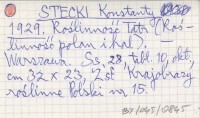 STECKI Konstanty
1929. Roślinność Tatr (Roś-
linność polan i hal).
Warszawa. Ss. 23, tabl. 10, okt.,
cm 32 x 23, Z st "Krajobrazy
roślinne Polski na 15.